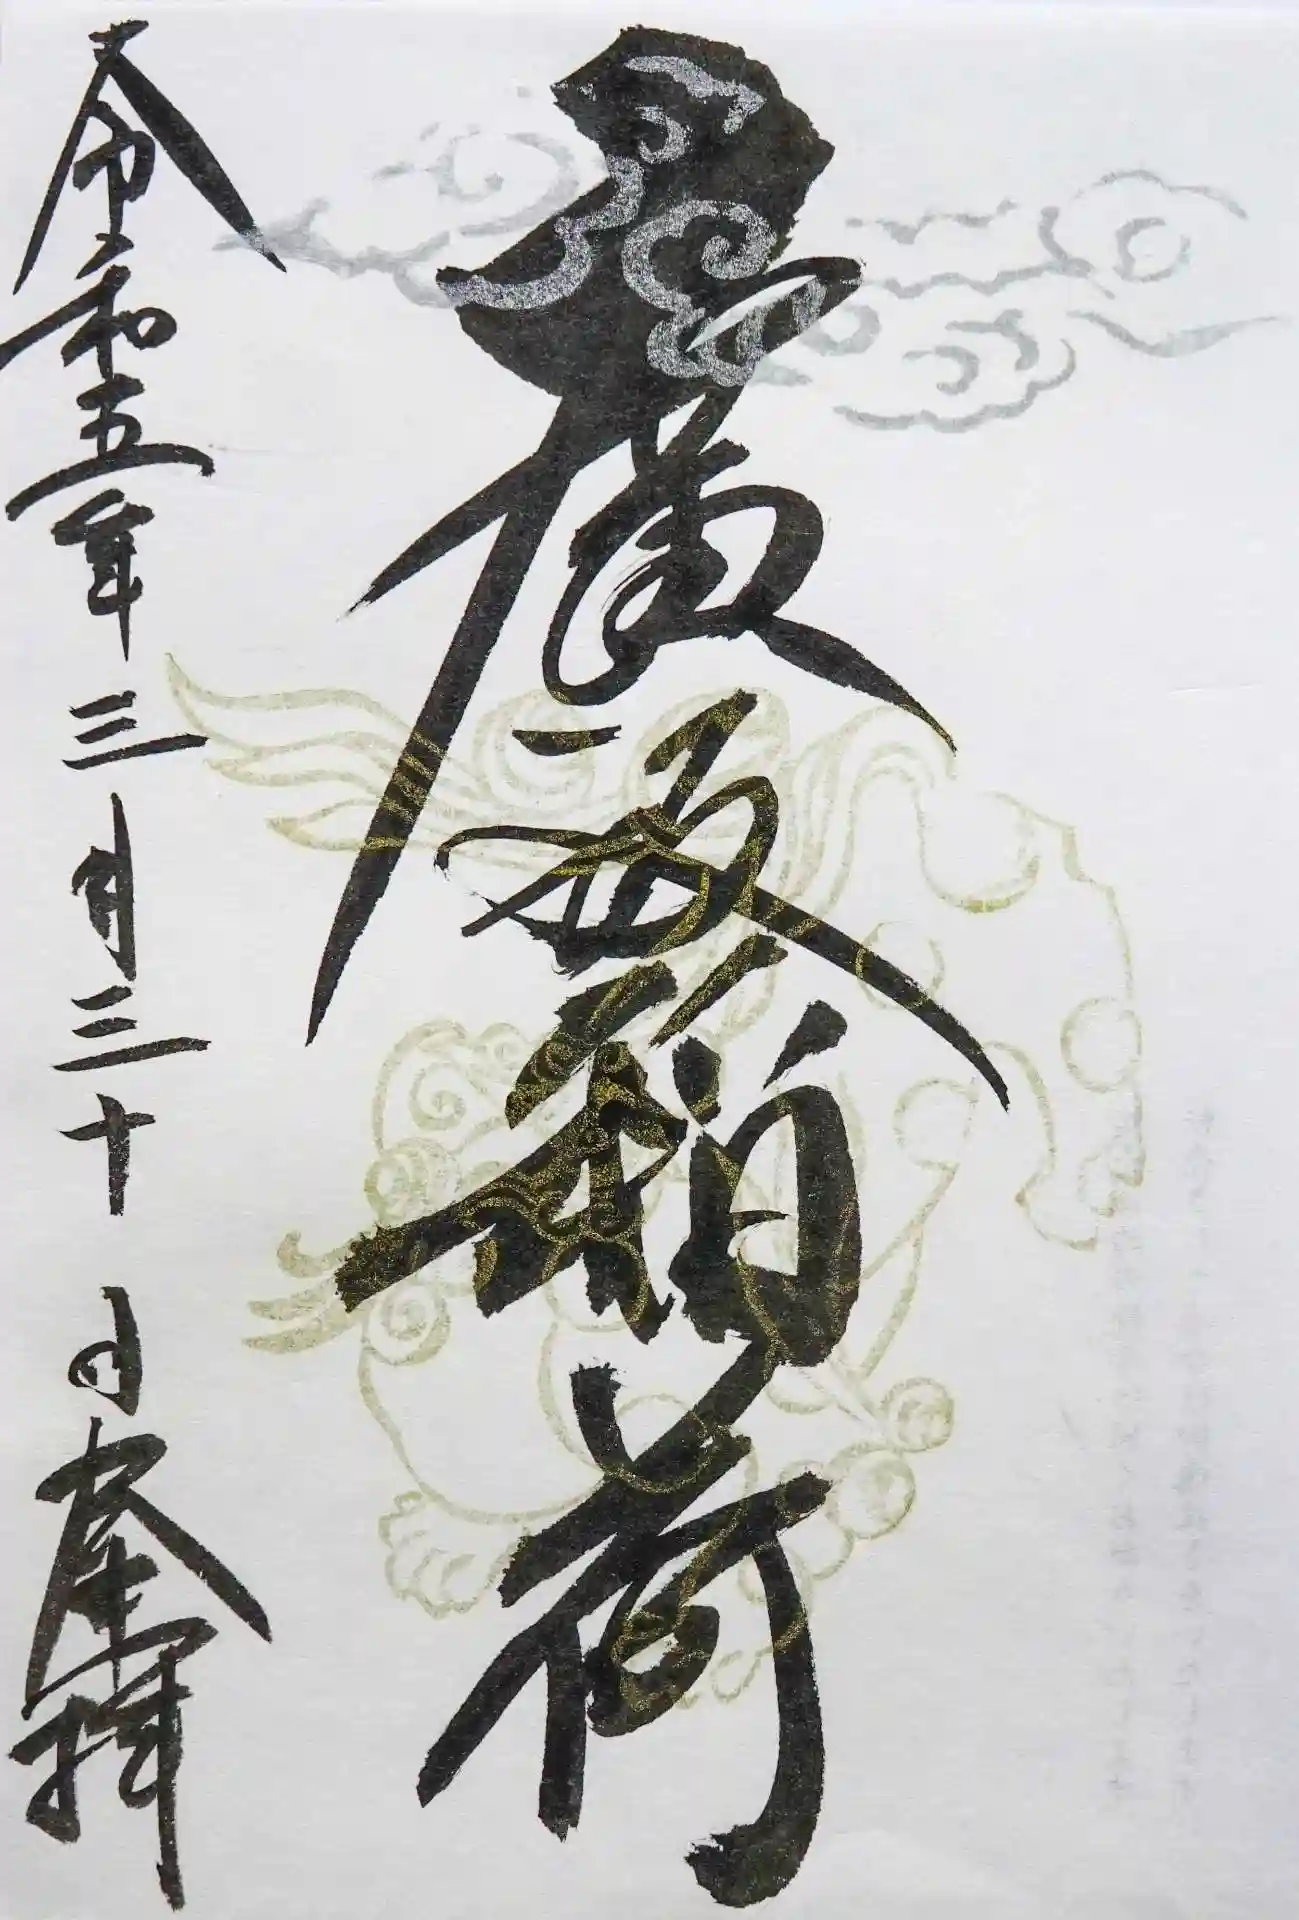 廣尾稲荷
令和五年三月三十日奉拝